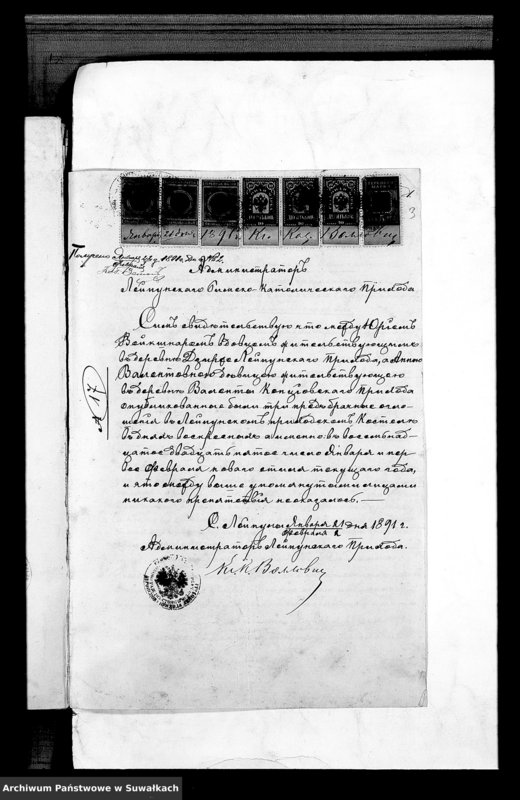 Января 21 дня 1891 г. Кс. Каз. Воллович
Получено
Администраторъ
Лейпунского Римско-Католического Прихода
Симъ свидетельствую что между Юриемъ
жительствующимъ
въ деревне Лейпунского Прихода, а Анною
Валентовною жительствующею
въ деревне Валенты Копціовского Прихода
опубликованные были три предбрачные огла-
шения въ Лейпунскомъ приходскомъ Костеле
въ дняхъ воскресныхъ а именно: въ восемьнад-
цатое двадцать пятое число Января и пер-
вое Февраля нового стиля текущаго года,
и что между выше упомянутыми лицами
никакого препятствія не оказалось. —
С. Лейпуны Января 21 дня 1891 г.
Февраля 2
Администраторъ Лейпунского Прихода.
Кс. К. Воллович
71
3
Archiwum Państwowe w Suwałkach